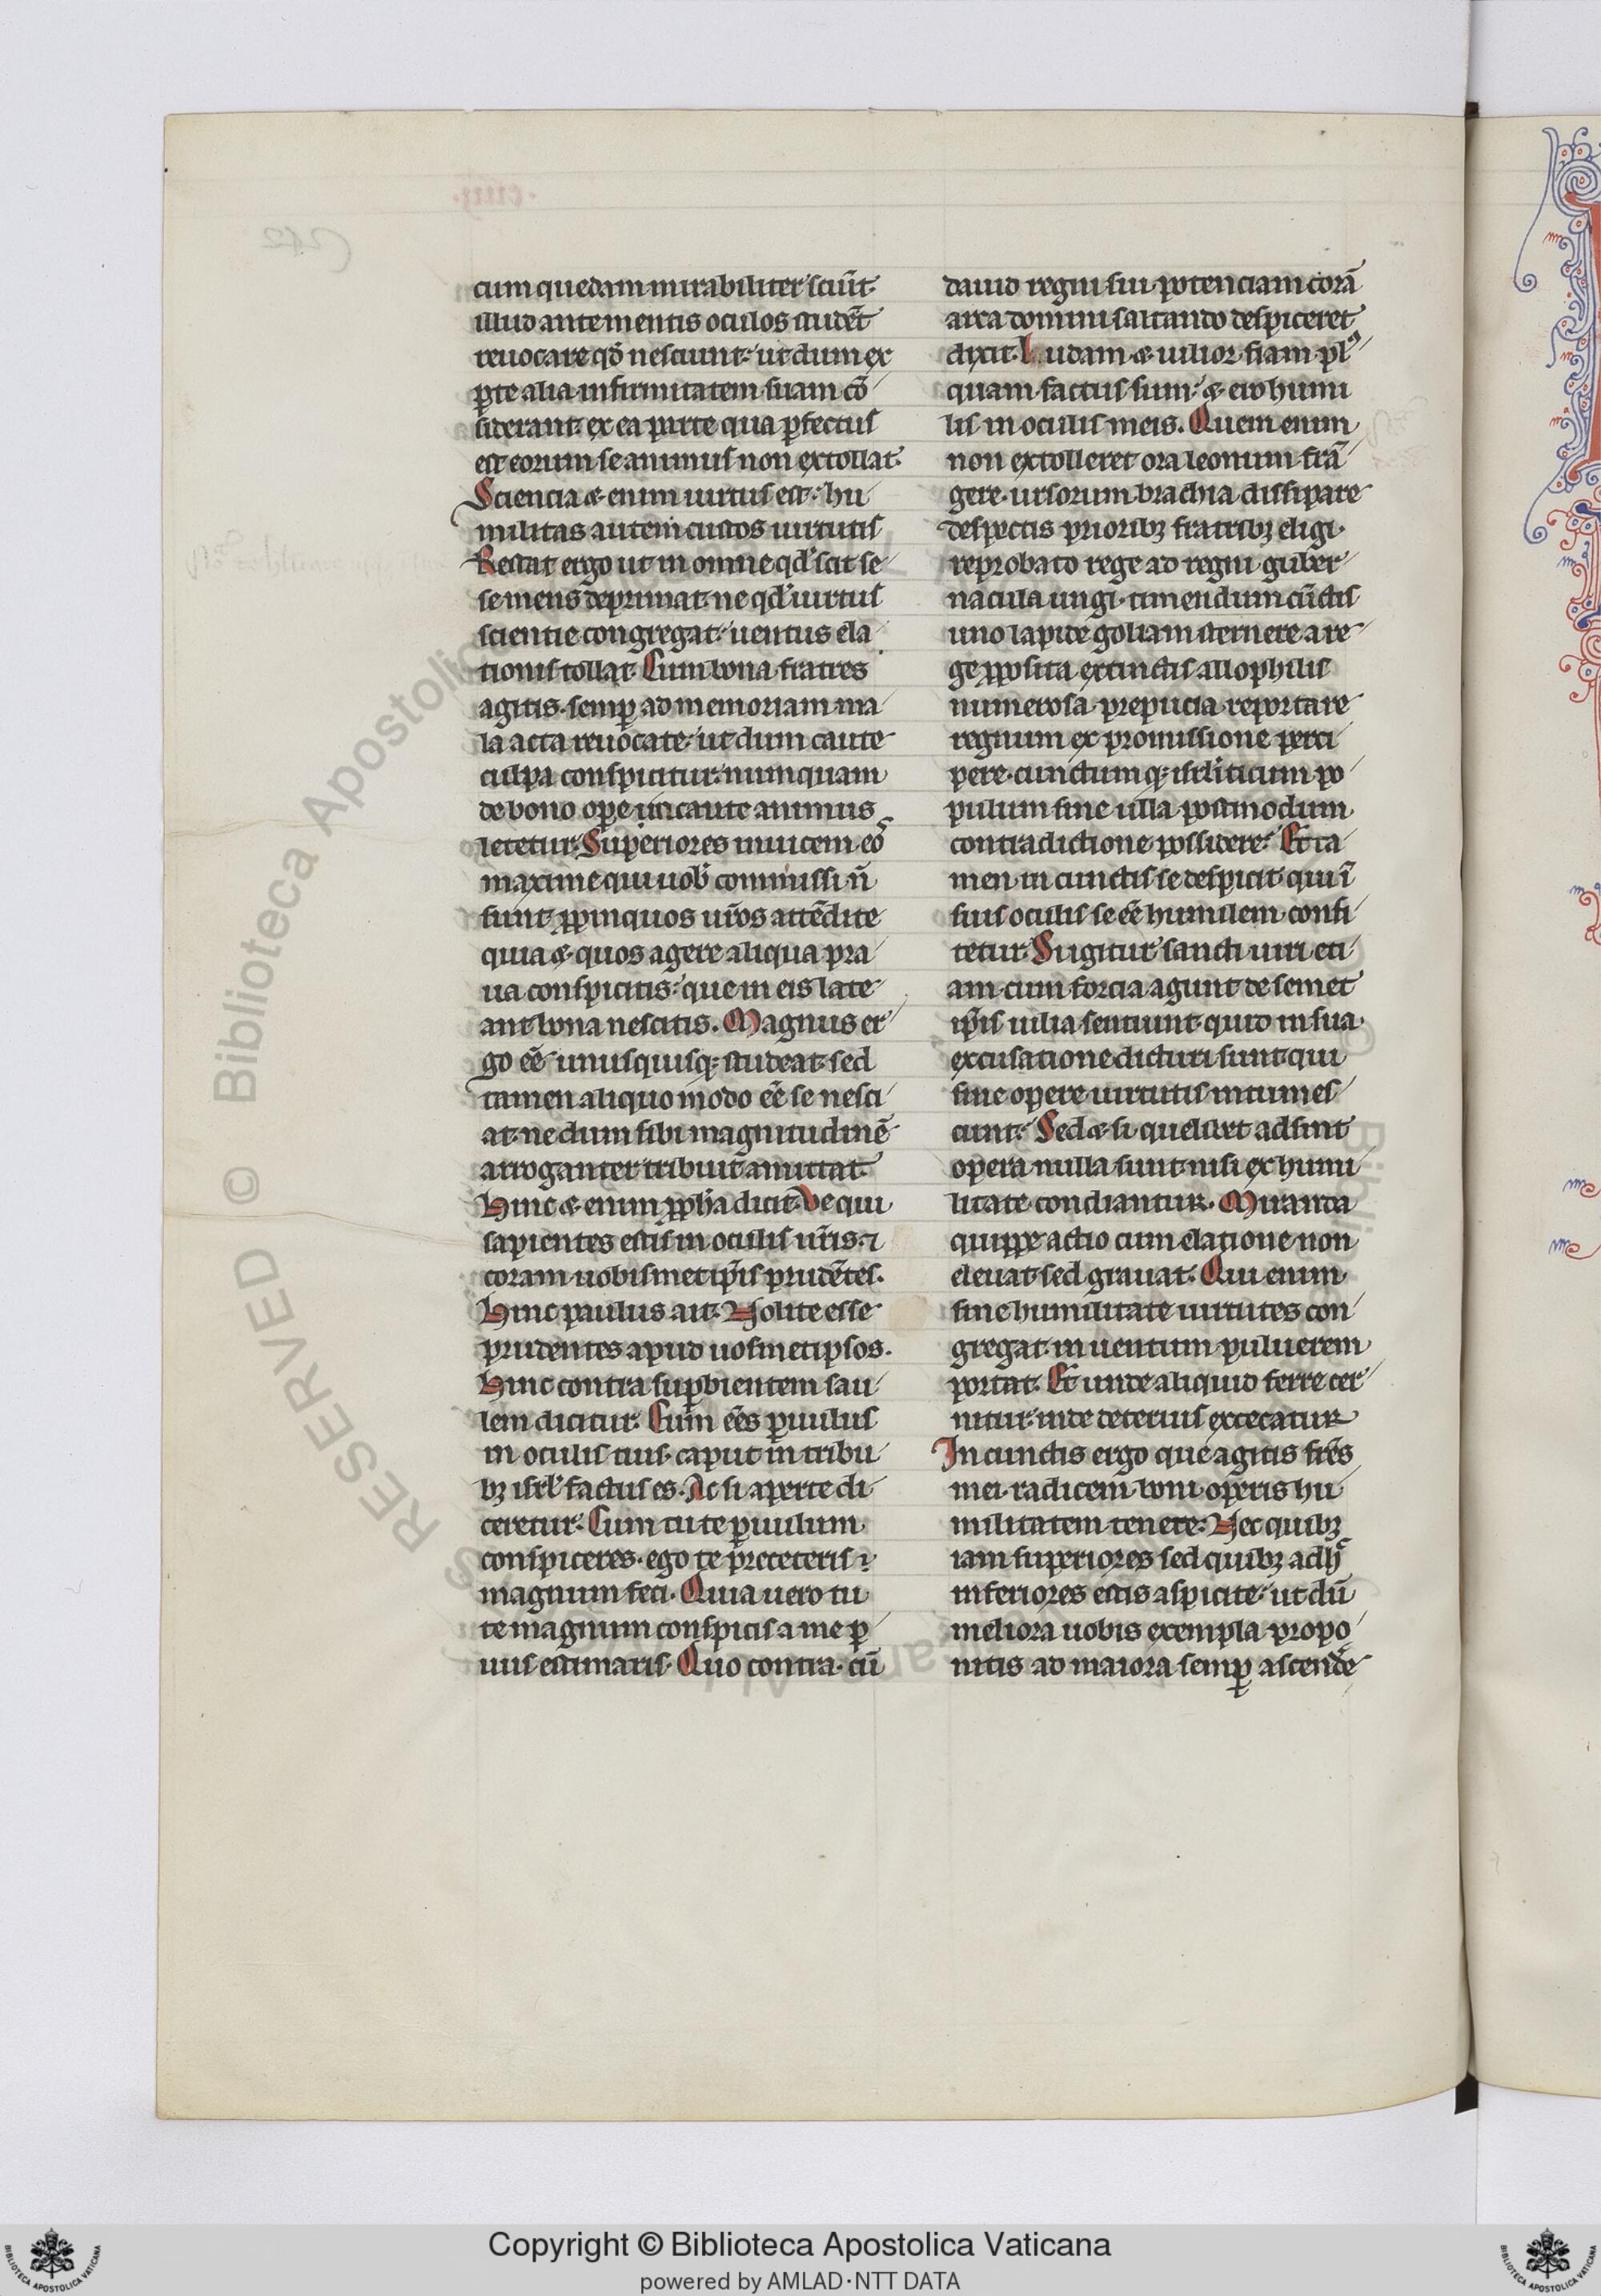 cum quedam mirabiliter sciūt
illud ante mentis oculos studēt
reuocare qd̄ nesciunt. ut dum ex
ꝑte alia infirmitatem suam cō
siderant. ex ea parte qua ꝑfectus
est eorum se animus non extollat.
Sciencia & enim uirtus est. hu
militas autem custos uirtutis
Restat ergo ut in omne qd̓ scit se
se mens deprimat. ne qd̓ uirtus
scientie congregat. uentus ela
tionis tollat. Cum bona fratres
agitis. semꝑ ad memoriam ma
la acta reuocate. ut dum caute
culpa conspicitur. numquam
de bono oꝑe incaute animus
letetur. Superiores inuicem. eos
maxime qui uob̓ commissi n̄
sunt. ꝓpinquos ur̄os attēdite
quia & quos agere aliqua pra
ua conspicitis. que in eis late
ant bona nescitis. Magnus er
go eē unusquisq; studeat. sed
tamen aliquo modo eē se nesci
at. ne dum sibi magnitudinē
arroganter tribuit amittat.
Hinc & enim ꝓph̄a dicit. Ve qui
sapientes estis in oculis ur̄is. ⁊
coram uobismet ip̄is prudētes.
Hinc paulus ait. Nolite esse
prudentes apud uosmetipsos.
Hinc contra suꝑbientem sau
lem dicitur. Cum eēs ꝑuulus
in oculis tuis. caput in tribu
bꝫ isrl̓ factus es. Ac si aperte di
ceretur. Cum tu te ꝑuulum
conspiceres. ego te p̄ ceteris
magnum feci. Quia uero tu
te magnum conspicis a me ꝑ
uus estimaris. Quo contra. cū
dauid regni sui potenciam corā
arca domini saltando despiceret
dixit. Ludam & uilior fiam pl᷒
quam factus sum. & ero humi
lis in oculis meis. Quem enim
non extolleret ora leonum frā
gere. ursorum brachia dissipare
despectis prioribꝫ fratribꝫ eligi.
reprobato rege ad regni guber
nacula ungi. timendum cūctis
uno lapide goliam sternere. a re
ge ꝓposita extinctis allophilis
numerosa prepucia reportare
regnum ex promissione perci
pere. cunctumq; isrl̓iticum po
pulum sine ulla postmodum
contradictione possidere. Et ta
men in cunctis se despicit. qui ī
suis oculis se eē humilem confi
tetur. Si igitur sancti uiri eti
am cum forcia agunt de semet
ip̄is uilia sentiunt. quid in sua
excusatione dicturi sunt. qui
sine opere uirtutis intumes
cunt. Sed & si quelibet adsint
opera nulla sunt. nisi ex humi
litate condiantur. Miranda
quippe actio cum elatione non
eleuat. sed grauat. Qui enim
sine humilitate uirtutes con
gregat. in uentum puluerem
portat. Et unde aliquid ferre cer
nitur. inde deterius excecatur
In cunctis ergo que agitis fr̄es
mei. radicem boni operis hu
militatem tenete. Nec quibꝫ
iam superiores sed quibꝫ adhᶜ
inferiores estis aspicite. ut dū
meliora uobis exempla propo
nitis ad maiora semꝑ ascende
Copyright © Biblioteca Apostolica Vaticana
powered by AMLAD·NTT DATA